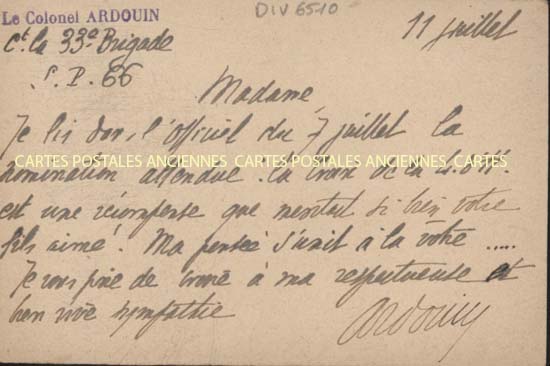 Le Colonel ARDOUIN
DIV 6510
11 juillet
Ct la 33e Brigade
S. P. 66
Madame,
Je lis dans l'Officiel du 7 juillet la
CARTES POSTALES ANCIENNES CARTES POSTALES ANCIENNES CARTES
nomination attendue. La croix de la L. d'H.
est une récompense que méritait si bien votre
fils aimé. Ma pensée s'unit à la vôtre .....
Je vous prie de croire à ma respectueuse et
bien vive sympathie
Ardouin